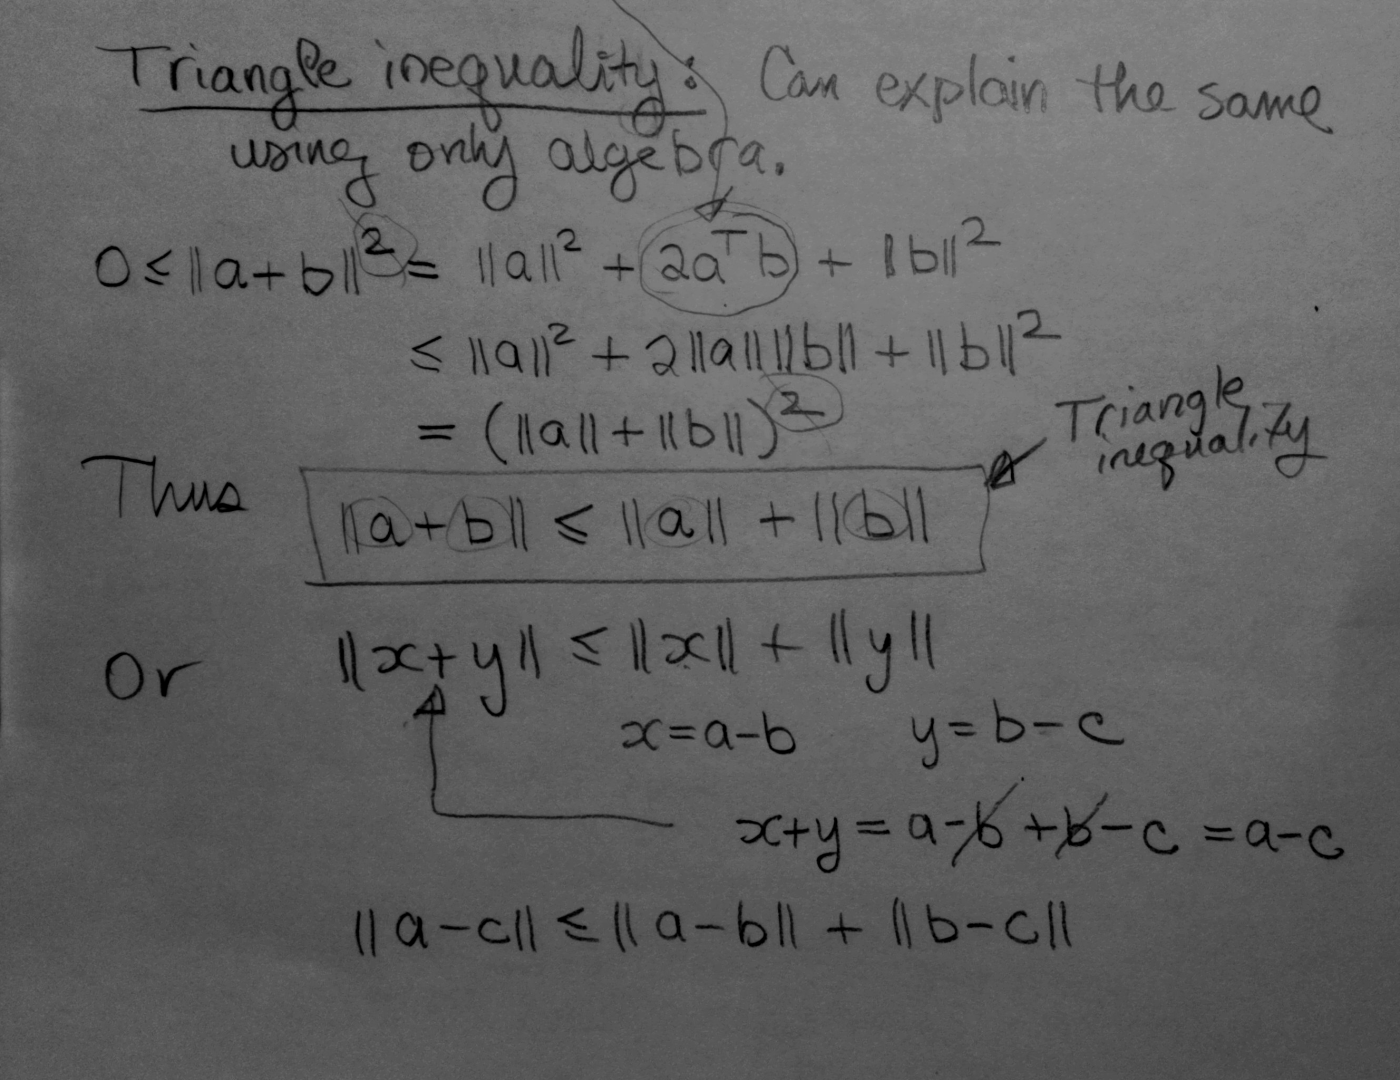 Triangle inequality: Can explain the same
using only algebra.
0 ≤ ||a+b||² = ||a||² + 2aᵀb + ||b||²
≤ ||a||² + 2||a|| ||b|| + ||b||²
= (||a|| + ||b||)²
Triangle
inequality
Thus ||a+b|| ≤ ||a|| + ||b||
Or ||x+y|| ≤ ||x|| + ||y||
x=a-b y=b-c
x+y = a-b+b-c = a-c
||a-c|| ≤ ||a-b|| + ||b-c||